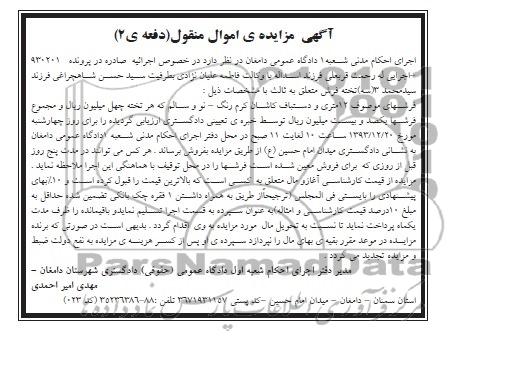 آگهی مزایده ی اموال منقول(دفعه ی۲)
اجرای احکام مدنی شعبه۱ دادگاه عمومی دامغان در نظر دارد در خصوص اجرائیه صادره در پرونده ۹۳۰۲۰۱
اجرایی له رحمت قربعلی فرزند اسداله با وکالت فاطمه علیان نژادی بطرفیت سید حسن شاهچراغی فرزند
سیدمحمد ۳(سه)تخته فرش متعلق به ثالث با مشخصات ذیل :
فرشهای موصوف ۱۲متری و دستباف کاشان کرم رنگ - نو و سالم که هر تخته چهل میلیون ریال و مجموع
فرشها یکصد و بیست میلیون ریال توسط خبره ی تعیینی دادگستری ارزیابی گردیده را برای روز چهارشنبه
مورخ ۱۳۹۳/۱۲/۲۰ ساعت ۱۰ لغایت ۱۱ صبح در محل دفتر اجرای احکام مدنی شعبه ۱دادگاه عمومی دامغان
به نشانی دادگستری میدان امام حسین (ع) از طریق مزایده بفروش برساند . هر کس می توانند در مدت پنج روز
قبل از روزی که برای فروش معین شده است فرشها را در محل توقیف با هماهنگی این اجرا ملاحظه نماید .
مزایده از قیمت کارشناسی آغازو مال متعلق به کسی است که بالاترین قیمت را قبول کرده است و ۱۰٪بهای
پیشنهادی را بایستی فی المجلس (ترجیحاًاز طریق به همراه داشتن ۱ فقره چک بانکی تضمین شده حداقل به
مبلغ ۱۰درصد قیمت کارشناسی و امثاله)به عنوان سپرده به قسمت اجرا تسلیم نمایدو باقیمانده را ظرف مدت
یکماه پرداخت نماید تا نسبت به تحویل مال مورد مزایده به وی اقدام گردد . بدیهی است در صورتی که برنده
مزایده در موعد مقرر بقیه ی بهای مال را نپردازد سپرده ی او پس از کسر هزینه ی مزایده به نفع دولت ضبط
و مزایده تجدید می گردد .
مدیر دفتر اجرای احکام شعبه اول دادگاه عمومی (حقوقی) دادگستری شهرستان دامغان -
مهدی امیر احمدی
استان سمنان - دامغان - میدان امام حسین -کد پستی ۳۶۷۱۹۳۱۱۵۷ تلفن :۸۸-۳۵۲۳۶۳۸۶ (کد ۰۲۳)
ParsNamadData